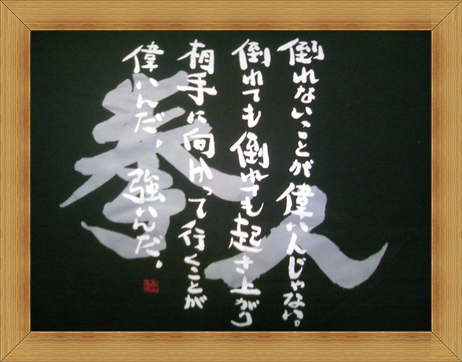 倒れないことが偉いんじゃない。
倒れても倒れても起き上がり
相手に向かって行くことが
偉いんだ。強いんだ。
拳人